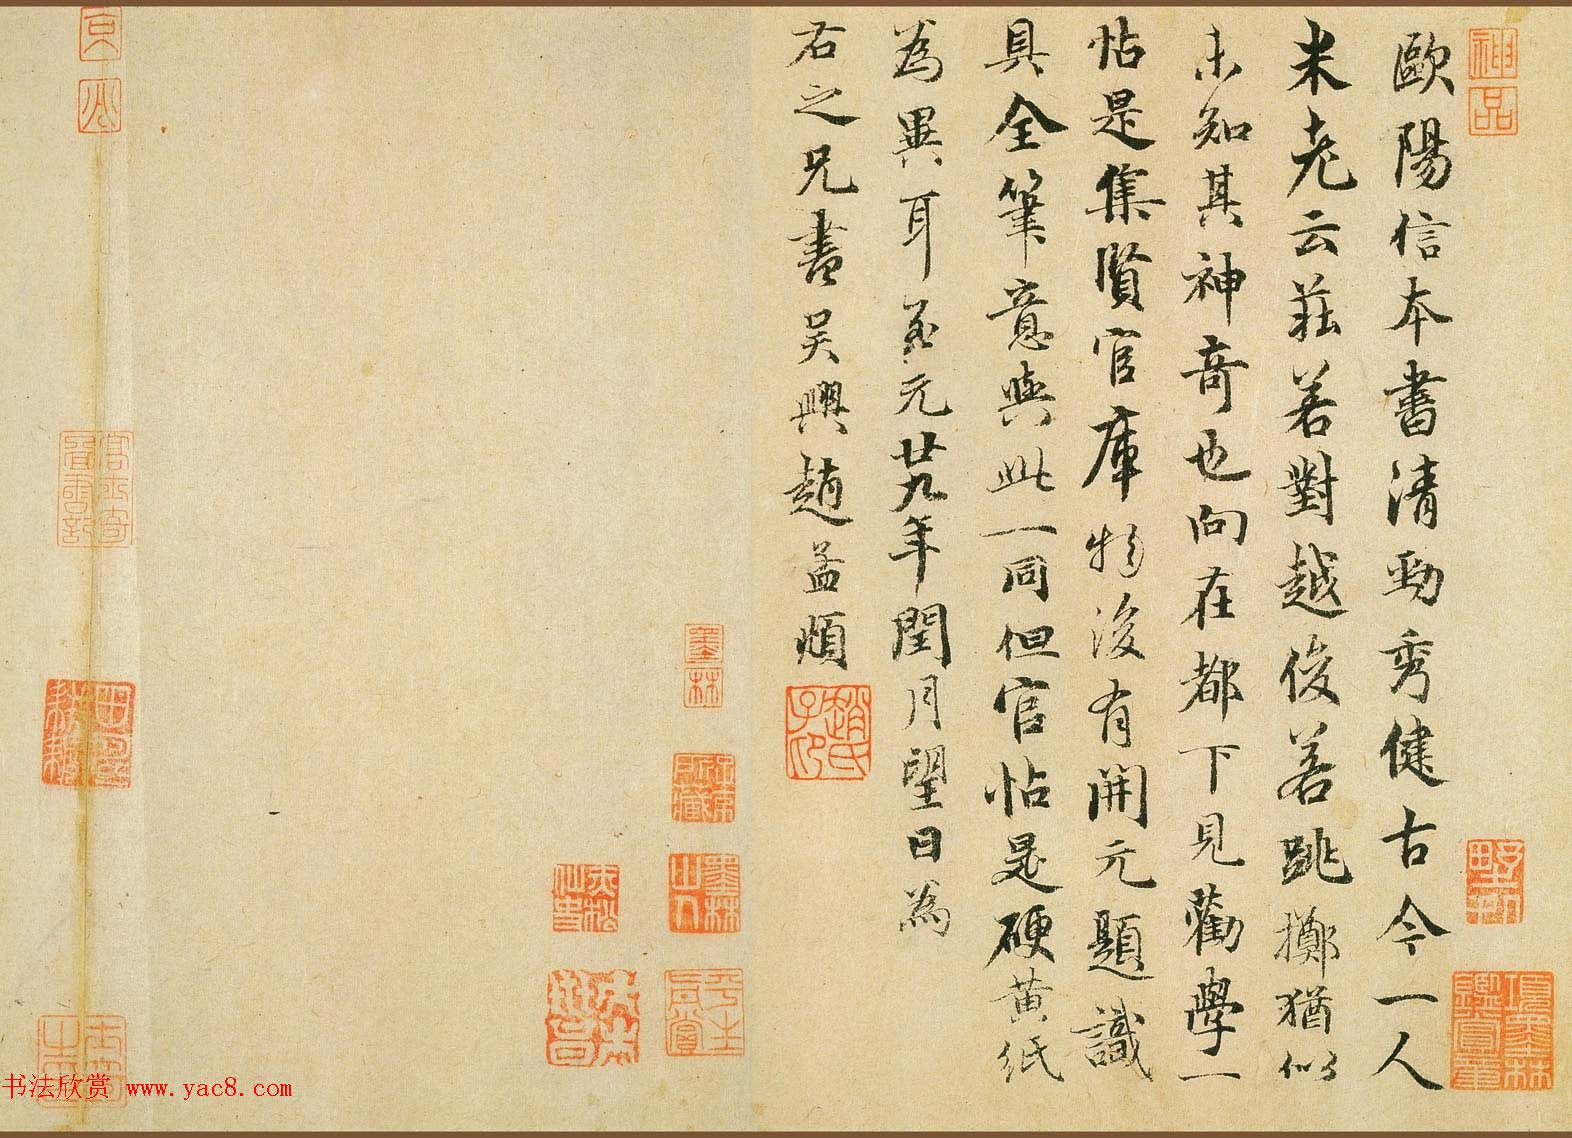 歐陽信本書清勁秀健古今一人
米老云莊若對越俊若跳擲猶似
未知其神奇也向在都下見勸學一
帖是集賢官庫物後有開元題識
具全筆意與此一同但官帖是硬黃紙
為異耳至元廿九年閏月望日為
右之兄書吳興趙孟頫
神品
趙氏子印
墨林
墨林山人
項墨林鑑賞章
平生真賞
書法欣賞 www.yac8.com